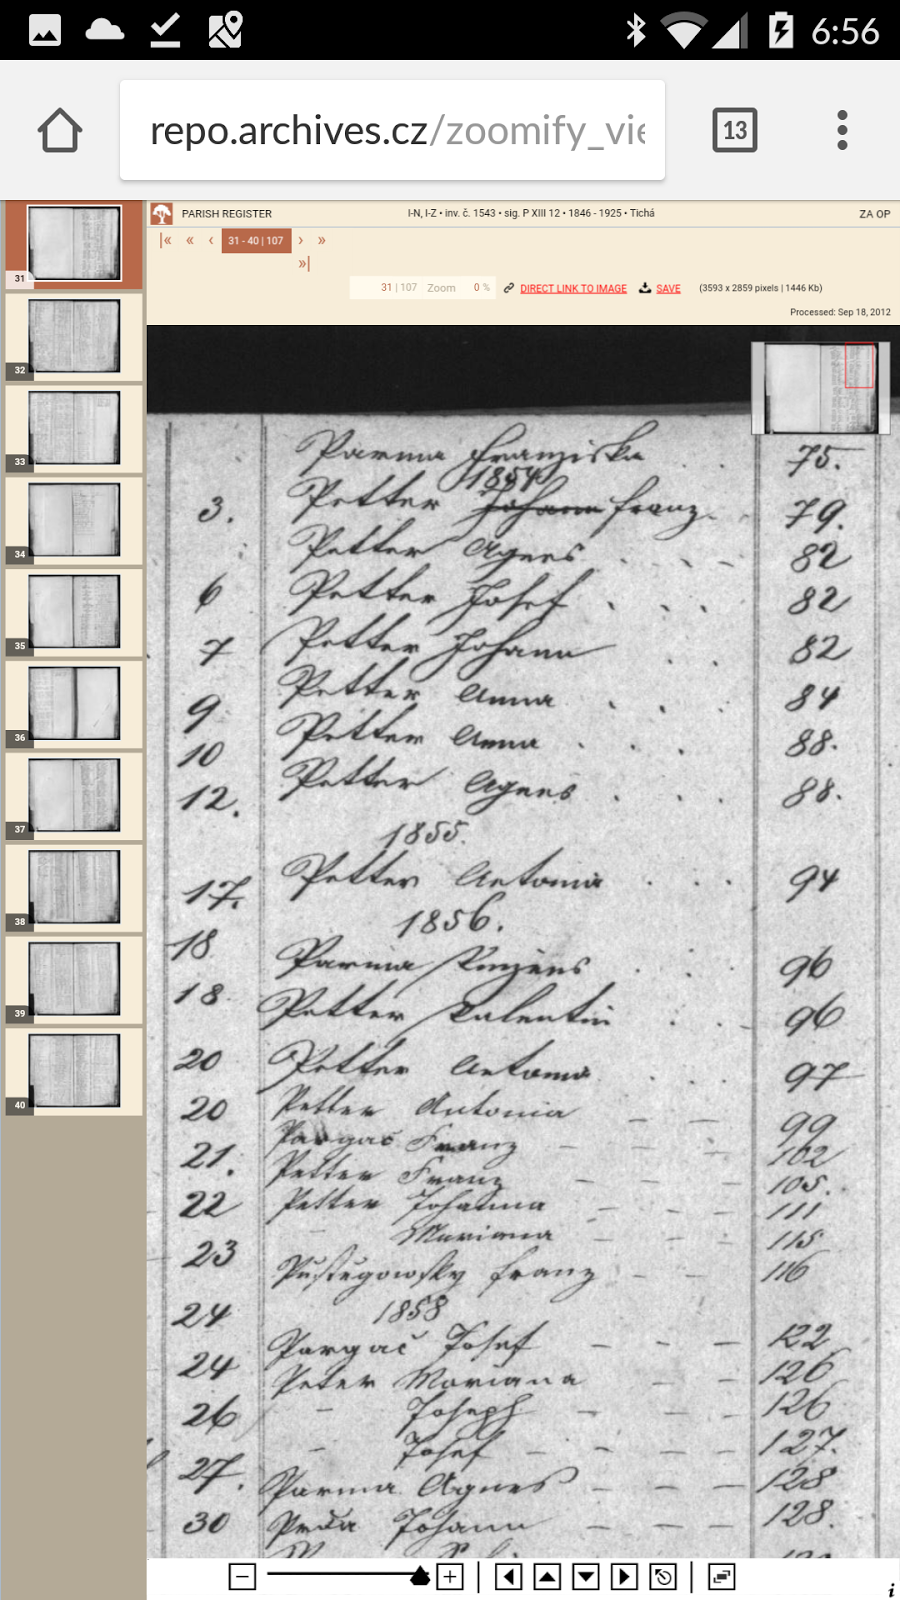 6:56
repo.archives.cz/zoomify_vie
13
PARISH REGISTER
I-N, I-Z • inv. č. 1543 • sig. P XIII 12 • 1846 - 1925 • Tichá
ZA OP
31 - 40 | 107
31 | 107 Zoom 0 %
DIRECT LINK TO IMAGE
SAVE
(3593 x 2859 pixels | 1446 Kb)
Processed: Sep 18, 2012
31
32
33
34
35
36
37
38
39
40
Parma Franziska 75.
1854
3. Petter Johann Franz 79.
Petter Agnes 82
6 Petter Josef 82
7 Petter Johann 82
9 Petter Anna 84
10 Petter Anna 88.
12. Petter Agnes 88.
1855.
17. Petter Antonia 94
1856.
18 Parma Vinzens 96
18 Petter Valentin 96
20 Petter Antonia 97
20 Petter Antonia 99
Pargač Franz 102
21. Petter Franz 105.
22 Petter Johanna 111
Mariana 115
23 Pustegowsky Franz 116
24 1858
Pargač Josef 122
24 Peter Mariana 126
26 - Joseph 126
- Josef 127.
27. Parma Agnes 128
30 Johann 128.